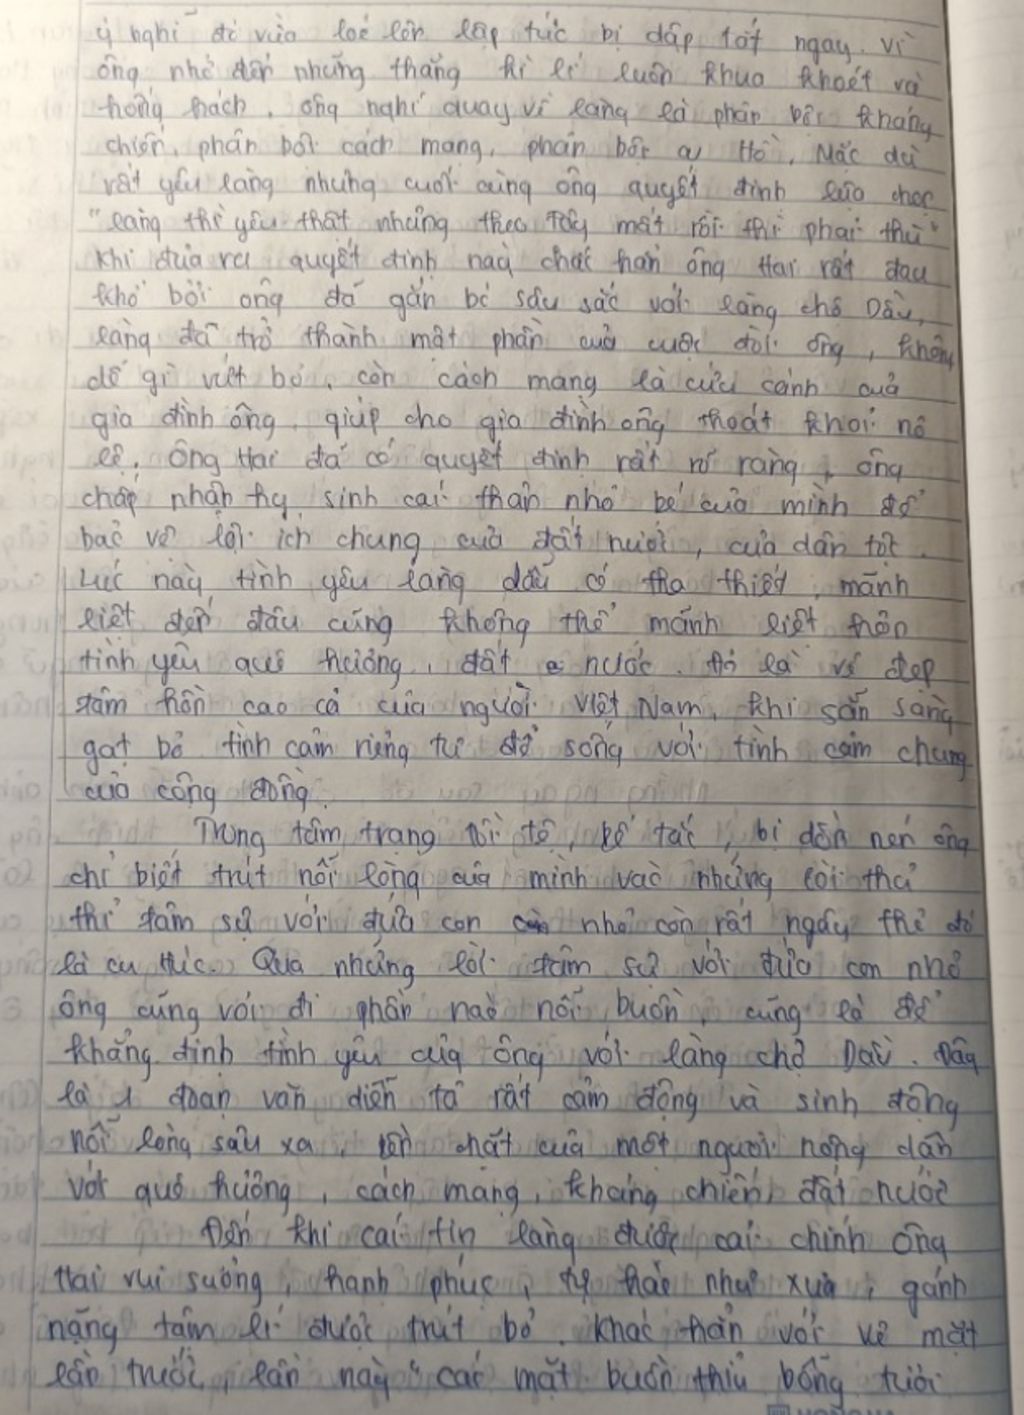 ý nghĩ đó vừa loé lên lập tức bị dập tắt ngay. Vì
ông nhớ đến những thằng kì lí luôn khua khoét và
hống hách. Ông nghĩ quay về làng là phản bội kháng
chiến, phản bội cách mạng, phản bội cụ Hồ. Mặc dù
rất yêu làng nhưng cuối cùng ông quyết định lựa chọn
"làng thì yêu thật nhưng theo Tây mất rồi thì phải thù"
Khi đưa ra quyết định này chắc hẳn ông Hai rất đau
khổ bởi ông đã gắn bó sâu sắc với làng chợ Dầu,
làng đã trở thành một phần của cuộc đời ông, không
dễ gì vứt bỏ, còn cách mạng là cứu cánh của
gia đình ông, giúp cho gia đình ông thoát khỏi nô
lệ. Ông Hai đã có quyết định rất rõ ràng, ông
chấp nhận hy sinh cái thân nhỏ bé của mình để
bảo vệ lợi ích chung của đất nước, của dân tộc.
Lúc này, tình yêu làng dẫu có tha thiết, mãnh
liệt đến đâu cũng không thể mãnh liệt hơn
tình yêu quê hương, đất nước. Đó là vẻ đẹp
tâm hồn cao cả của người Việt Nam, khi sẵn sàng
gạt bỏ tình cảm riêng tư để sống với tình cảm chung
của cộng đồng.
Trong tâm trạng tồi tệ, bế tắc, bị dồn nén ông
chỉ biết trút nỗi lòng của mình vào những lời thủ
thỉ tâm sự với đứa con nhỏ còn rất ngây thơ đó
là cu Húc. Qua những lời tâm sự với đứa con nhỏ
ông cũng vơi đi phần nào nỗi buồn, cũng là để
khẳng định tình yêu của ông với làng chợ Dầu. Đây
là 1 đoạn văn diễn tả rất cảm động và sinh động
nỗi lòng sâu xa, bền chặt của một người nông dân
với quê hương, cách mạng, kháng chiến, đất nước
Đến khi cái tin làng được cải chính ông
Hai vui sướng, hạnh phúc, tự hào như xưa, gánh
nặng tâm lí được trút bỏ. Khác hẳn với vẻ mặt
lần trước, lần này "cái mặt buồn thỉu bỗng tươi